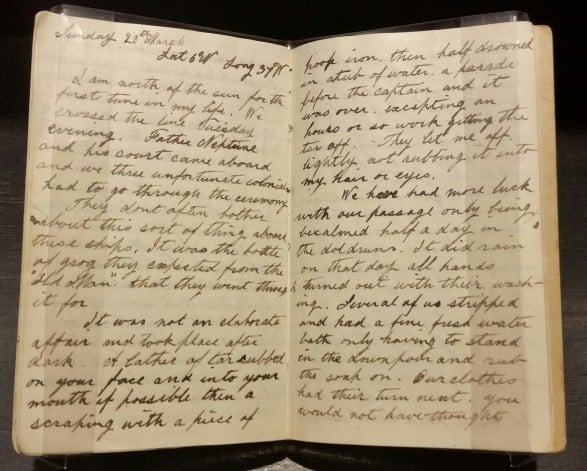 Sunday 20th March
Lat 6°N Long 31°W.
I am north of the sun for the
first time in my life. We
crossed the line Tuesday
evening. Father Neptune
and his court came aboard
and we three unfortunate colonials
had to go through the ceremony
They dont often bother
about this sort of thing aboard
these ships. It was the bottle
of grog they expected from the
"Old Man" that they went through
it for
It was not an elaborate
affair and took place after
dark. A lather of tar rubbed
on your face and into your
mouth if possible then a
scraping with a piece of
hoop iron, then half drowned
in a tub of water, a parade
before the captain and it
was over, excepting an
hours or so work getting the
tar off. They let me off
lightly not rubbing it into
my hair or eyes.
We have had more luck
with our passage only being
becalmed half a day in
the doldrums. It did rain
on that day all hands
turned out with their wash-
ing. Several of us stripped
and had a fine fresh water
bath only having to stand
in the downpour and rub
the soap on. Our clothes
had their turn next. you
would not have thought